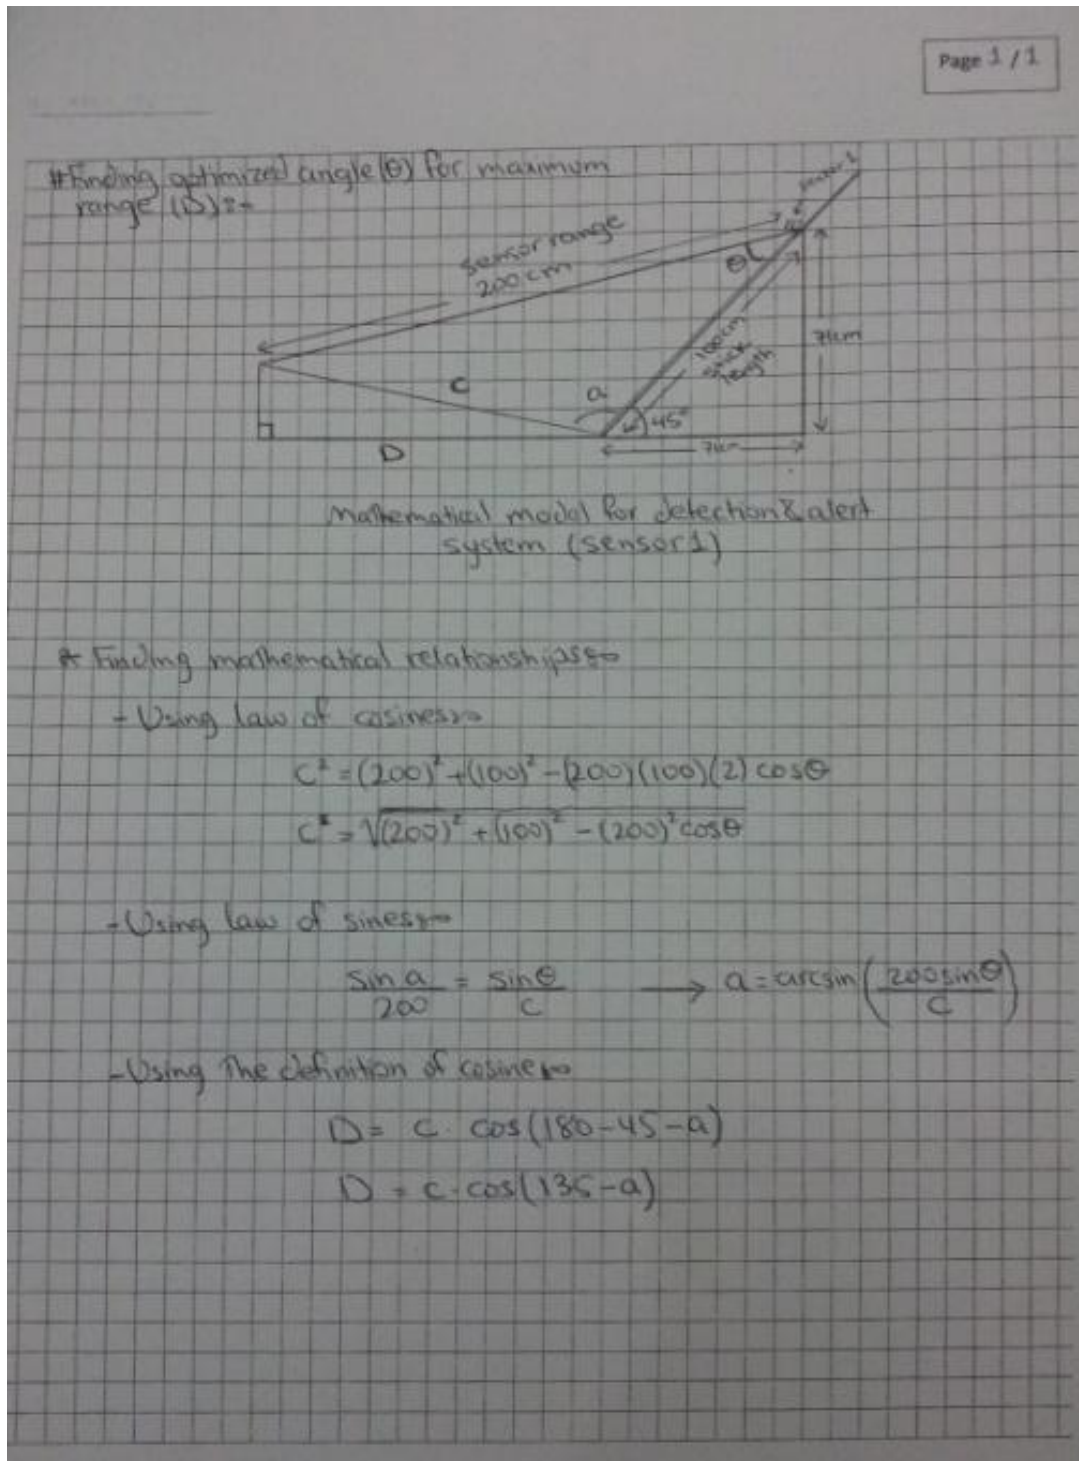 Page 1 / 1
#Finding optimized angle (θ) for maximum
range (D):-
sensor 1
sensor range
200 cm
θ
71cm
100cm
stick
length
C
a
45°
D
71cm
Mathematical model for detection & alert
system (sensor 1)
* Finding mathematical relationships:-
- Using law of cosines:-
C² = (200)² + (100)² - (200)(100)(2) cosθ
C = √(200)² + (100)² - (200)² cosθ
- Using law of sines:-
sin a / 200 = sin θ / C → a = arcsin (200 sin θ / C)
- Using the definition of cosine:-
D = C · cos(180-45-a)
D = C · cos(135-a)